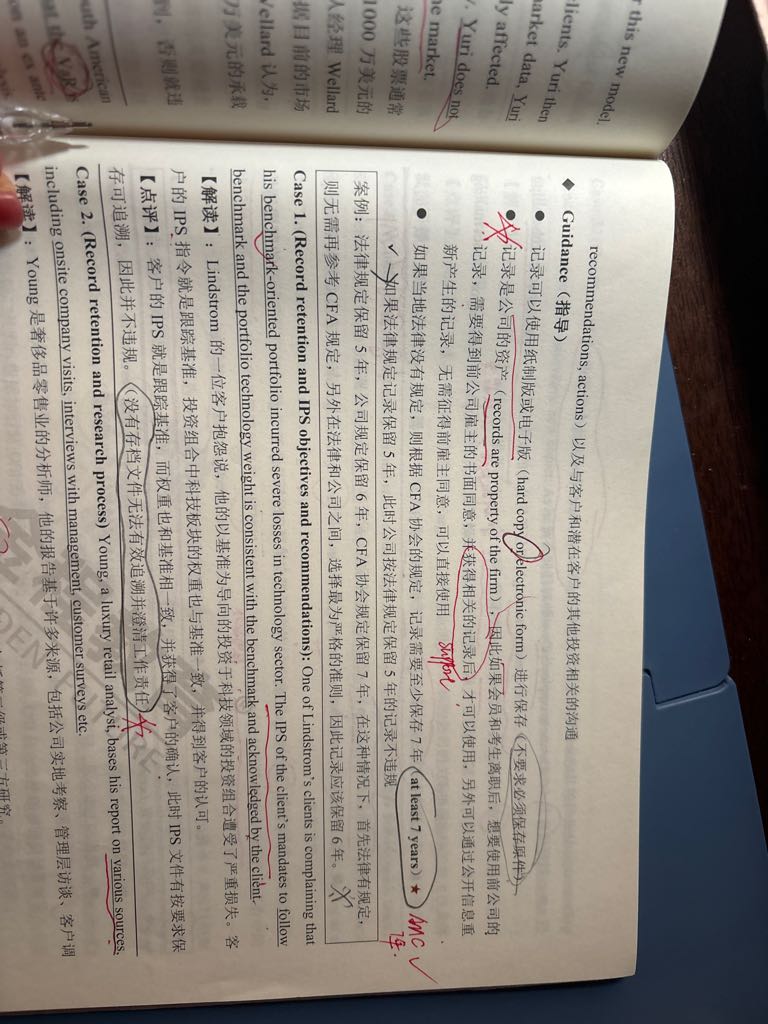 r this new model.
lients. Yuri then
market data, Yuri
ly affected.
. Yuri does not
he market.
这些股票通常
1000 万美元的
人经理 Wellard
据目前的市场
Wellard 认为,
万美元的承载
则,否则就违
outh American
the VaR
on an ex ante
recommendations, actions)以及与客户和潜在客户的其他投资相关的沟通
◆ Guidance(指导)
● 记录可以使用纸制版或电子版(hard copy or electronic form)进行保存(不要求必须保存原件)
● 记录是公司的资产(records are property of the firm),因此如果会员和考生离职后,想要使用前公司的
记录,需要得到前公司雇主的书面同意,并获得相关的记录后,才可以使用,另外可以通过公开信息重
新产生的记录,无需征得前雇主同意,可以直接使用
support
● 如果当地法律没有规定,则根据 CFA 协会的规定,记录需要至少保存 7 年(at least 7 years)★
AMC ✓
✓ 如果法律规定记录保留 5 年,此时公司按法律规定保留 5 年的记录不违规
案例:法律规定保留 5 年,公司规定保留 6 年,CFA 协会规定保留 7 年,在这种情况下,首先法律有规定,
则无需再参考 CFA 规定,另外在法律和公司之间,选择最为严格的准则,因此记录应该保留 6 年。
Case 1. (Record retention and IPS objectives and recommendations): One of Lindstrom's clients is complaining that
his benchmark-oriented portfolio incurred severe losses in technology sector. The IPS of the client's mandates to follow
benchmark and the portfolio technology weight is consistent with the benchmark and acknowledged by the client.
【解读】:Lindstrom 的一位客户抱怨说,他的以基准为导向的投资于科技领域的投资组合遭受了严重损失。客
户的 IPS 指令就是跟踪基准,投资组合中科技板块的权重也与基准一致,并得到客户的认可。
【点评】:客户的 IPS 就是跟踪基准,而权重也和基准相一致,并获得了客户的确认,此时 IPS 文件有按要求保
存可追溯,因此并不违规。(没有存档文件无法有效追溯并澄清工作责任)
Case 2. (Record retention and research process) Young, a luxury retail analyst, bases his report on various sources,
including onsite company visits, interviews with management, customer surveys etc.
【解读】:Young 是奢侈品零售业的分析师,他的报告基于许多来源,包括公司实地考察、管理层访谈、客户调